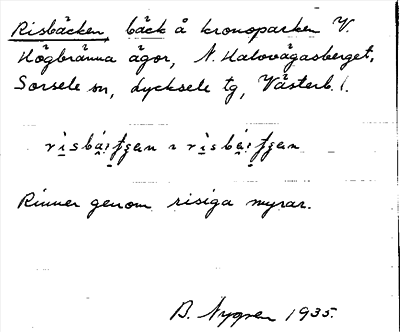 Risbäcken, bäck å kronoparken V.
Högbränna ägor, N. Kalovägasberget,
Sorsele sn, Lycksele tg, Västerb. l.
Rinner genom risiga myrar.
B. Nygren 1935.